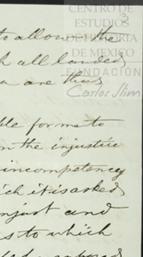 CENTRO DE
ESTUDIOS
DE HISTORIA
DE MEXICO
FUNDACIÓN
Carlos Slim
3
to allow the
all landed
are thus
ble for me to
the injustice
incompetency
ch it is asked
unjust and
s to which